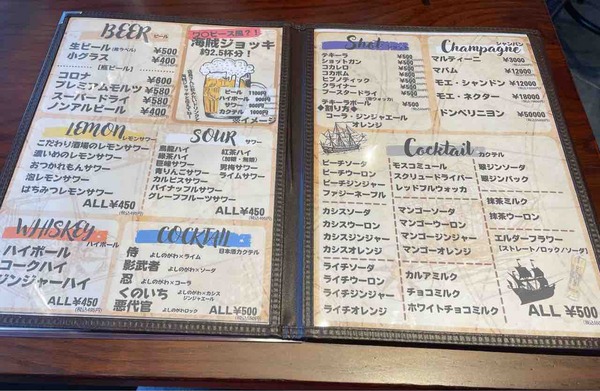 BEER ビール
生ビール(香るラベル) ¥500
小グラス ¥400
[瓶ビール]
コロナ ¥600
プレミアムモルツ ¥580
スーパードライ ¥580
ノンアルビール ¥400
ワ〇ピース風？！
海賊ジョッキ
約2.5杯分！
ビール 1100円
ハイボール 900円
サワー 900円
カクテル 1000円
※イメージ
LEMON レモンサワー
こだわり酒場のレモンサワー
濃いめのレモンサワー
おつかれもんサワー
泡レモンサワー
はちみつレモンサワー
ALL¥450
(税込495円)
SOUR サワー
烏龍ハイ
緑茶ハイ
巨峰サワー
青りんごサワー
カルピスサワー
パイナップルサワー
グレープフルーツサワー
紅茶ハイ
(加糖・無糖)
男梅サワー
ライムサワー
ALL¥450
(税込495円)
WHISKEY ハイボール
ハイボール
コークハイ
ジンジャーハイ
ALL¥450
(税込495円)
COCKTAIL 日本酒カクテル
侍 よしのがわ×ライム
影武者 よしのがわ×ソーダ
忍 よしのがわ×コーラ
くのいち よしのがわ×カシス
ジンジャエール
悪代官 よしのがわロック
ALL¥500
(税込550円)
Shot
テキーラ ¥500
ショットガン ¥500
コカレロ ¥500
コカボム ¥800
ヒプノティック ¥500
クライナー ¥500
フースクードライ ¥500
テキーラボール ¥500
◆割り方◆
コーラ・ジンジャエール
オレンジ
Champagne シャンパン
マルティーニ ¥3000
マバム ¥12000
モエ・シャンドン ¥12000
モエ・ネクター ¥18000
ドンペリニヨン ¥50000
Cocktail カクテル
ピーチソーダ
ピーチウーロン
ピーチジンジャー
ファジーネーブル
カシスソーダ
カシスウーロン
カシスジンジャー
カシスオレンジ
ライチソーダ
ライチウーロン
ライチジンジャー
ライチオレンジ
モスコミュール
スクリュードライバー
レッドブルウォッカ
マンゴーソーダ
マンゴーウーロン
マンゴージンジャー
マンゴーオレンジ
カルアミルク
チョコミルク
ホワイトチョコミルク
翠ジンソーダ
翠ジンバック
抹茶ミルク
抹茶ウーロン
エルダーフラワー
(ストレート/ロック/ソーダ)
ALL ¥500
(税込550円)